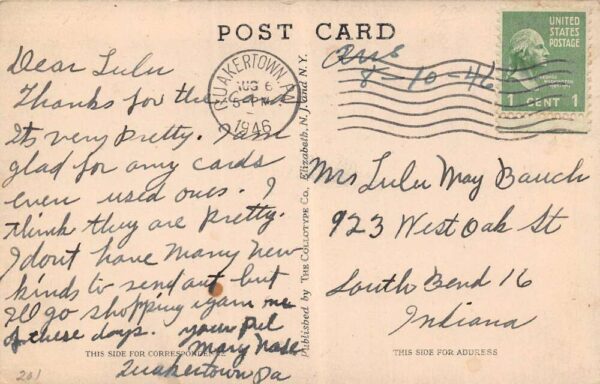 POST CARD
Dear Lulu
Thanks for the card
Its very pretty. I am
glad for any cards
even used ones. I
think they are pretty.
I dont have many new
kinds to send out but
I'll go shopping again one
of these days. your Pal
Mary Nase
Quakertown Pa
THIS SIDE FOR CORRESPONDENCE
201
QUAKERTOWN, PA.
AUG 6
5 PM
1946
Published by The Collotype Co., Elizabeth, N. J. and N. Y.
Ans
8-10-46
UNITED
STATES
POSTAGE
1 CENT 1
Mrs Lulu May Bauch
923 West Oak St
South Bend 16
Indiana
THIS SIDE FOR ADDRESS